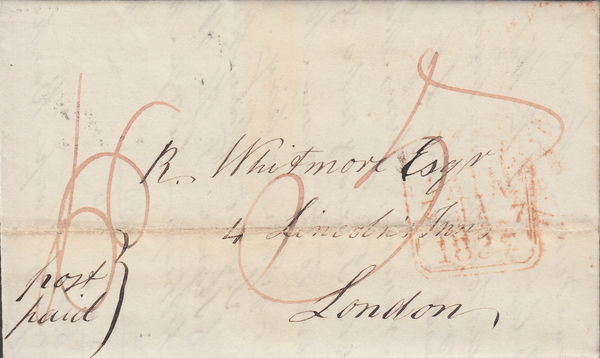 R. Whitmore Esqr
4 Lincoln's Inn,
London,
post
paid